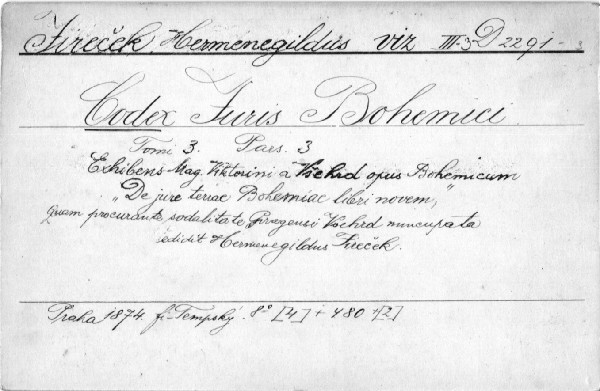 Jireček, Hermenegildus viz III-3-D 2291-
Codex Juris Bohemici
Tomi 3. Pars. 3
Exhibens Mag. Viktorini a Všehrd opus Bohemicum
„De jure terrae Bohemiae libri novem,"
quam procurante, sodalitate Pragensi Všehrd nuncupata
edidit Hermenegildus Jireček.
Praha 1874. f. Tempský. 8° [4] + 480 + [2]